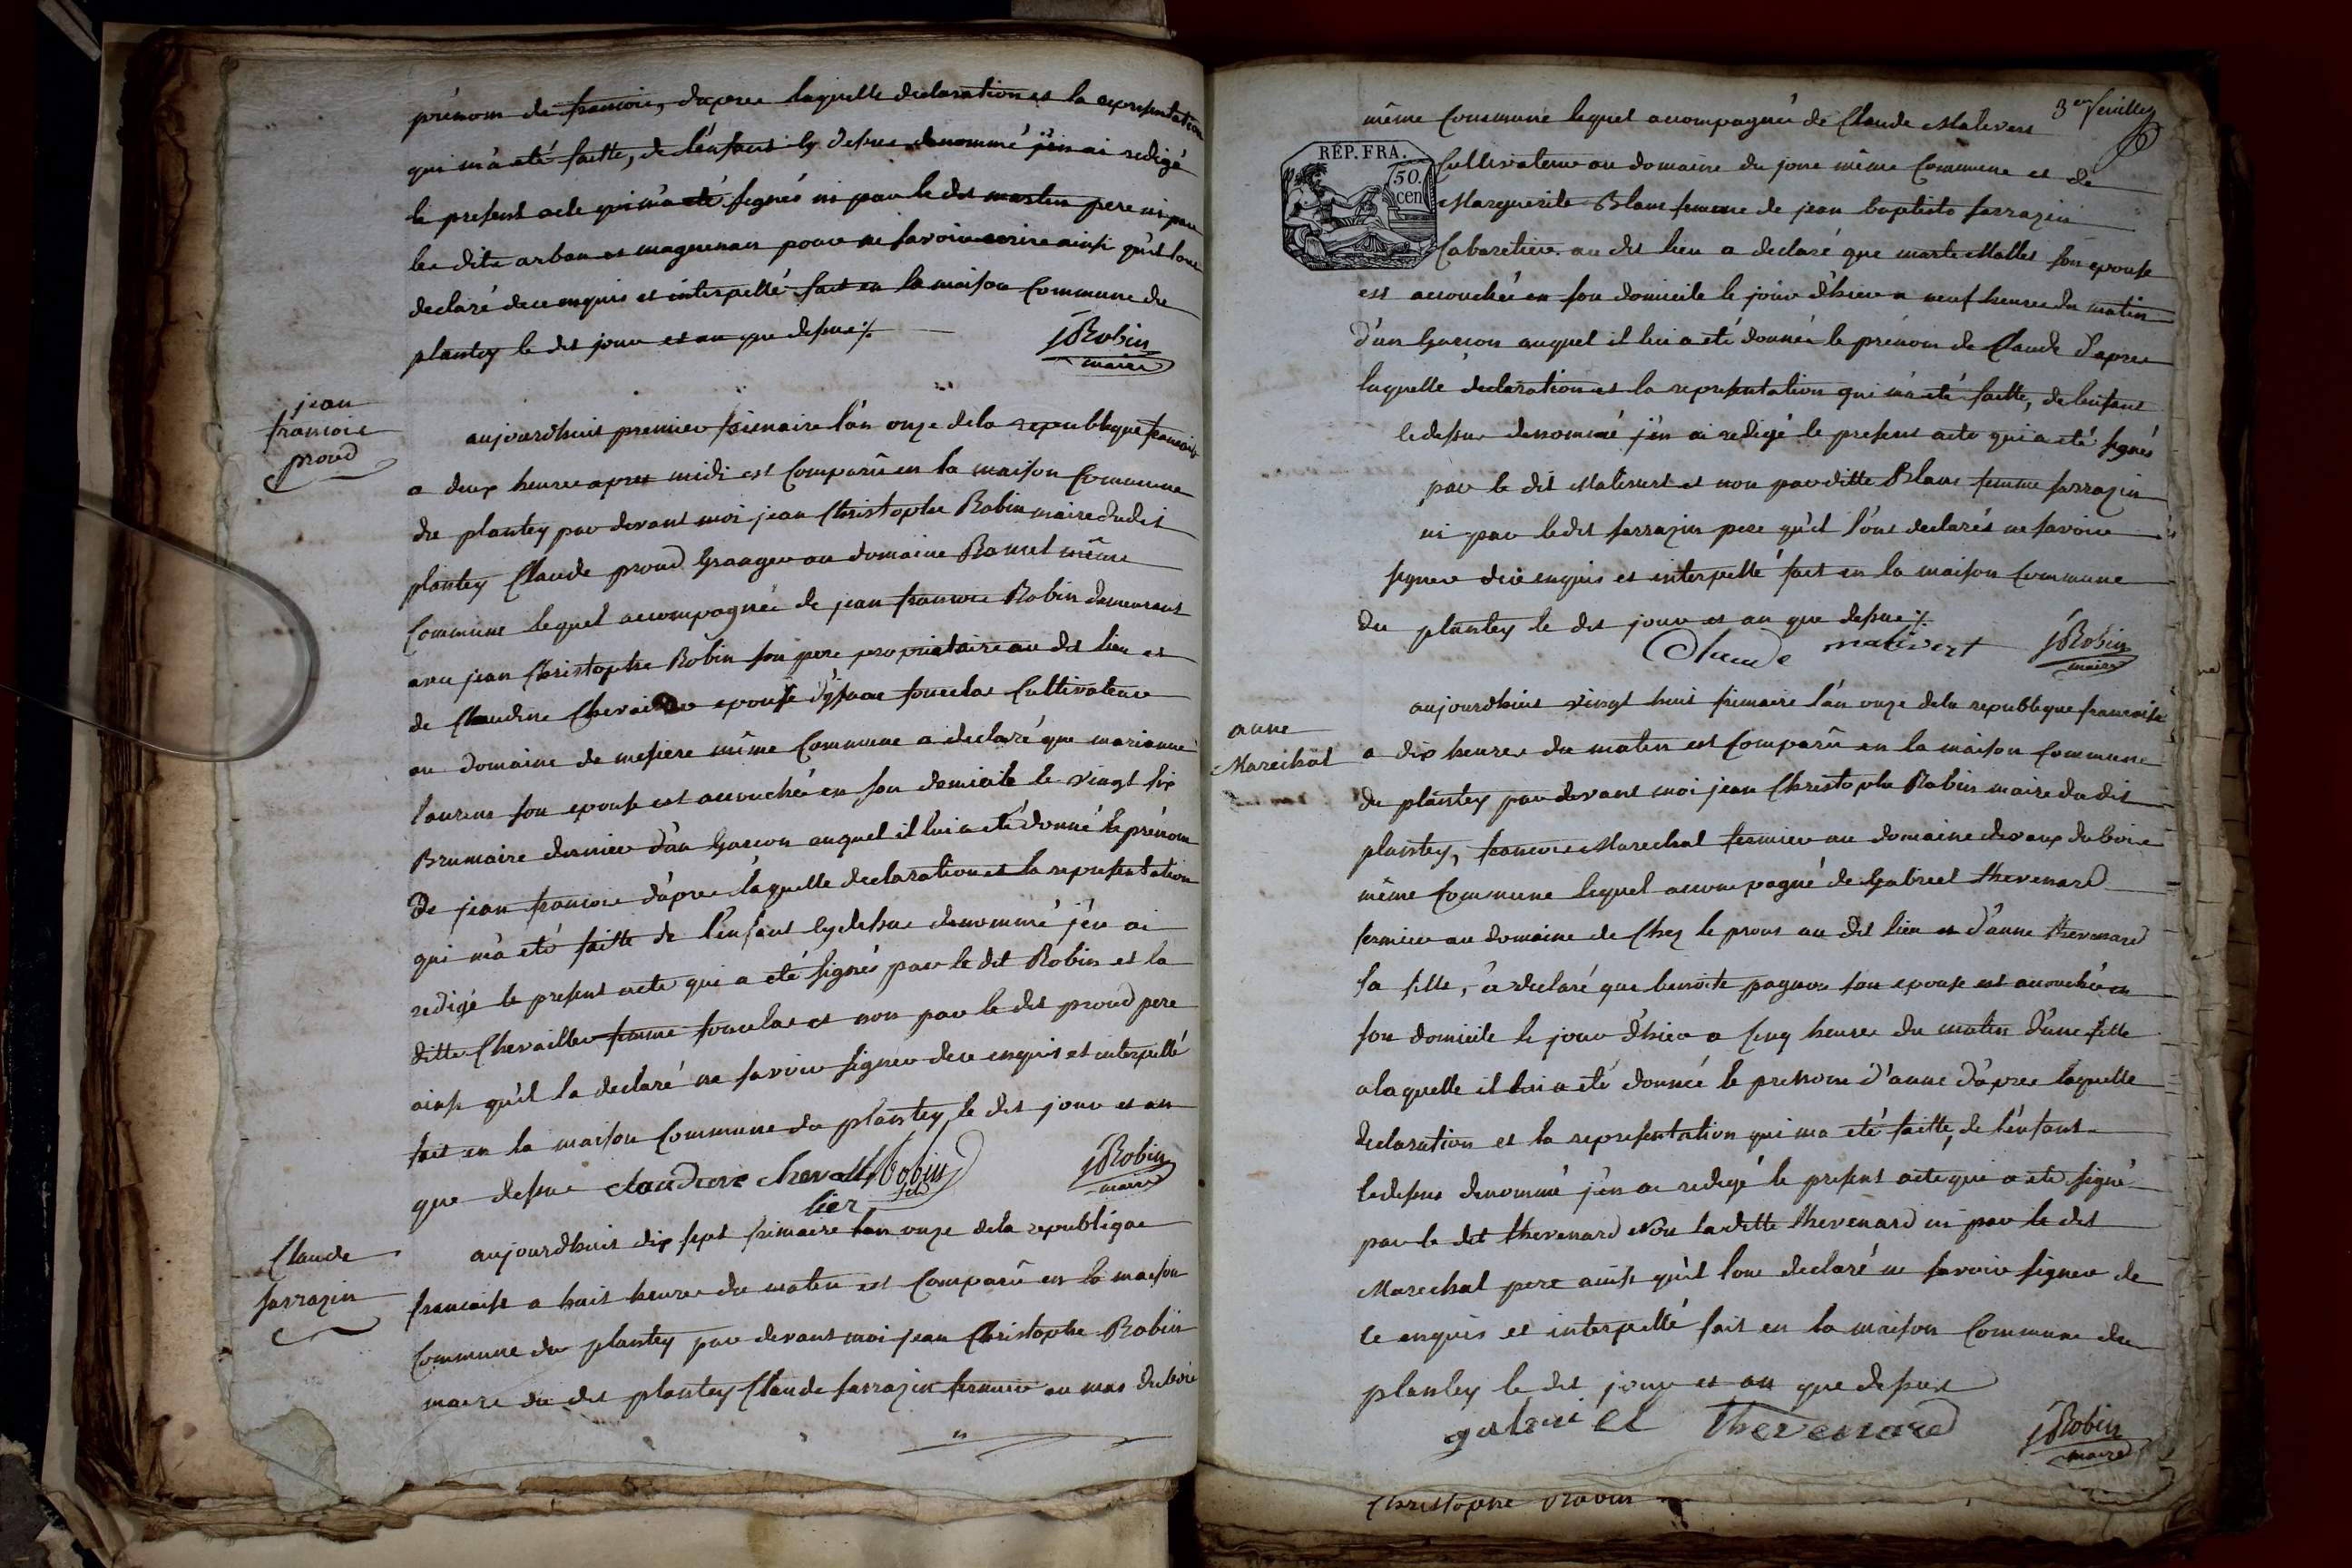 prénom de francois, dapres laquelle declaration et la representation
qui m'a eté faitte, de l'enfant cy dessus denommé j'en ai redigé
le present acte qui n'a eté signés ni par le dit martin pere ni par
les dits arban et maguenan pour ne savoir ecrire ainsi qu'il lont
declaré de ce enquis et interpellé fait en la maison Commune du
plantey le dit jour et an que dessus %
JRobin
maire
jean
francois
proud
aujourdhuit premier frimaire l'an onze dela republique francaise
a deux heures apres midi est Comparû en la maison Commune
du plantey par devant moi jean Christophe Robin maire dudit
plantey Claude proud Granger au domaine Bonnet même
Commune lequel accompagnée de jean francois Robin demeurant
avec jean Christophe Robin son pere proprietaire au dit lieu et
de Claudine epouse Cultivateur
au domaine de mesiere même Commune a declaré que marianne
laurens son epouse est accouchée en son domicile le vingt six
Brumaire dernier d'un Garcon auquel il lui a eté donné le prénom
De jean francois d'apres laquelle declaration et la representation
qui m'a eté faitte de l'enfant cy dessus denommé j'en ai
redigé le present acte qui a eté signés par le dit Robin et la
ditte Chevailler femme et non par le dit proud pere
ainsi qu'il la declaré ne savoir signer de ce enquis et interpellé
fait en la maison Commune du plantey le dit jour et an
que dessus claudine chevall Robin
lier fils
JRobin
maire
Claude
sarrazin
aujourdhuit dix sept frimaire lan onze dela republique
francaise a huit heures du matin est Comparû en la maison
Commune du plantey par devant moi jean Christophe Robin
maire du dit plantey Claude sarrazin fermier au mas dubois
3em feuillet
même Commune lequel accompagnée de Claude Malivert
REP. FRA.
50.
cen
Cultivateur au domaine du jone même Commune et de
Marguerite Blanc femme de jean baptiste sarrazin
Cabaretier au dit lieu a declaré que marte Mallet son epouse
est accouchée en son domicile le jour d'hier a neuf heures du matin
D'un Garcon auquel il lui a eté donnée le prénom de Claude d'apres
laquelle declaration et la representation qui m'a eté faitte, de lenfant
cedessus denommé j'en ai redigé le present acte qui a eté signés
par le dit Malivert et non par ditte Blanc femme sarrazin
ni par ledit sarrazin pere qu'il l'ont declarés ne savoir
signer de ce enquis et interpellé fait en la maison Commune
du plantey le dit jour et an que dessus %
Claude malivert
JRobin
maire
anne
Marechal
aujourdhuit vingt huit frimaire l'an onze dela republique francaise
a dix heures du matin est Comparû en la maison Commune
du plantey par devant moi jean Christophe Robin maire du dit
plantey, francois Marechal fermier au domaine devaux dubois
même Commune lequel accompagné de Gabriel thevenard
fermier au domaine de Chez le prous au dit lieu et d'anne thevenard
sa fille, a declaré que benoite pagnon son epouse est accouchée en
son domicile le jour d'hier a cinq heures du matin d'une fille
alaquelle il lui a eté donnée le prenom d'anne d'apres laquelle
declaration et la representation qui ma eté faitte, de l'enfant
cedessus denommé j'en ai redigé le present acte qui a eté signé
par le dit thevenard Non ladditte thevenard ni par le dit
Marechal pere ainsi qu'il lont declaré ne savoir signer de
ce enquis et interpellé fait en la maison Commune du
plantey le dit jour et an que dessus
gabriel thevenard
JRobin
maire
Christophe Robin